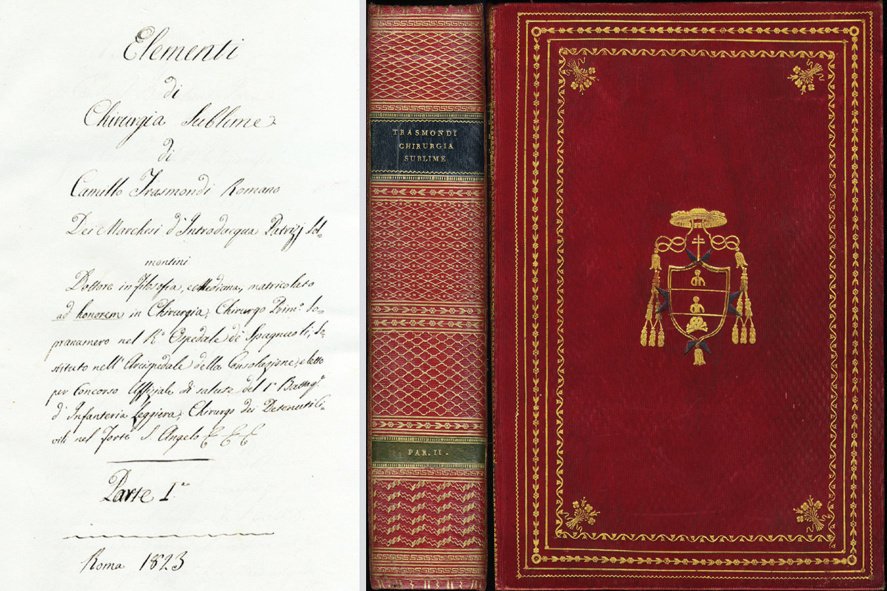 Elementi
di
Chirurgia Sublime
di
Camillo Trasmondi Romano
Dei Marchesi d'Introdacqua Patrizj Sol-
montini
Dottore in filosofia, e Medicina, matricolato
ad honorem in Chirurgia, Chirurgo Prim.o So-
pranumero nel R.e Ospedale di Spagnuoli, So-
stituto nell'Arcispedale della Consolazione, e letto
per Concorso Uffiziale di salute del 1.o Battag.e
d'Infanteria Leggiera, Chirurgo dei Detenuti Ci-
vili nel Forte S. Angelo
Parte I.a
Roma 1823
TRASMONDI
CHIRURGIA
SUBLIME
PAR. II.